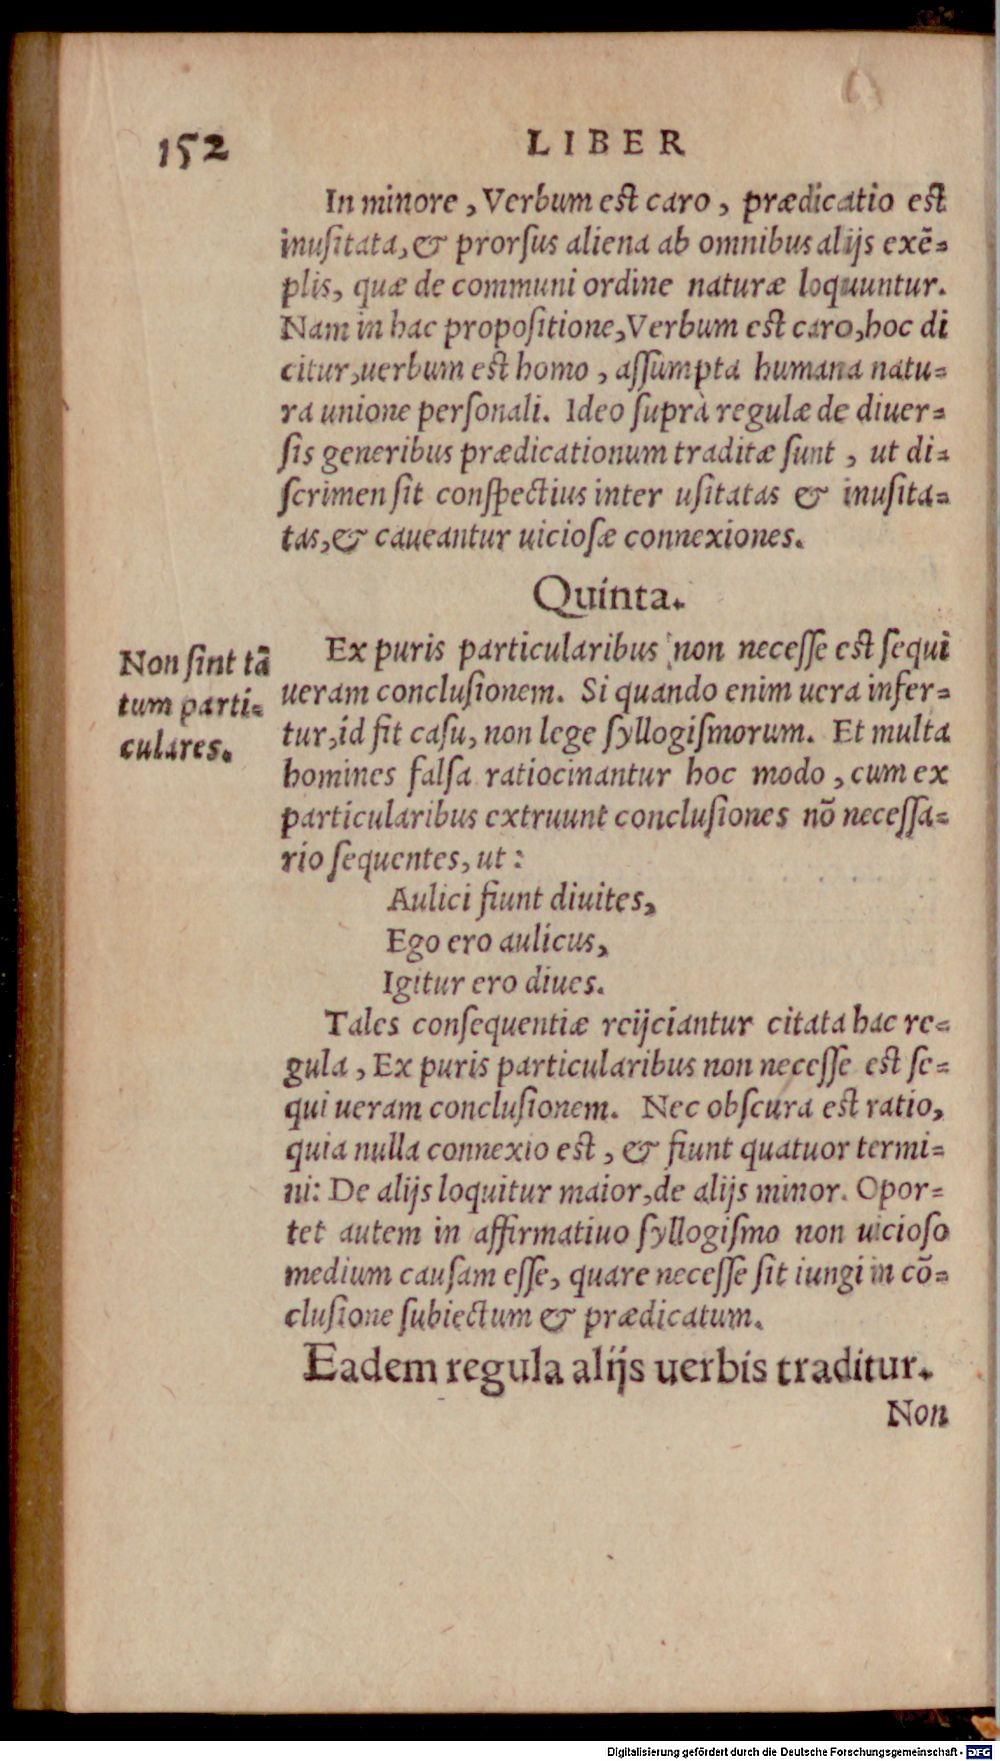 152
LIBER
In minore, Verbum est caro, prædicatio est
inuſitata, & prorſus aliena ab omnibus alijs exē-
plis, quæ de communi ordine naturæ loquuntur.
Nam in hac propoſitione, Verbum est caro, hoc di
citur, uerbum est homo, aſſumpta humana natu-
ra unione perſonali. Ideo ſuprà regulæ de diuer-
ſis generibus prædicationum traditæ ſunt, ut di-
ſcrimen ſit conſpectius inter uſitatas & inuſita-
tas, & caueantur uicioſæ connexiones.
Quinta.
Non ſint tā
tum parti-
culares.
Ex puris particularibus non neceſſe est ſequi
ueram concluſionem. Si quando enim uera infer-
tur, id fit caſu, non lege ſyllogiſmorum. Et multa
homines falſa ratiocinantur hoc modo, cum ex
particularibus extruunt concluſiones nō neceſſa-
rio ſequentes, ut:
Aulici fiunt diuites,
Ego ero aulicus,
Igitur ero diues.
Tales conſequentiæ reijciantur citata hac re-
gula, Ex puris particularibus non neceſſe est ſe-
qui ueram concluſionem. Nec obſcura est ratio,
quia nulla connexio est, & fiunt quatuor termi-
ni: De alijs loquitur maior, de alijs minor. Opor-
tet autem in affirmatiuo ſyllogiſmo non uicioſo
medium cauſam eſſe, quare neceſſe ſit iungi in cō-
cluſione ſubiectum & prædicatum.
Eadem regula alijs uerbis traditur.
Non
Digitalisierung gefördert durch die Deutsche Forschungsgemeinschaft - DFG